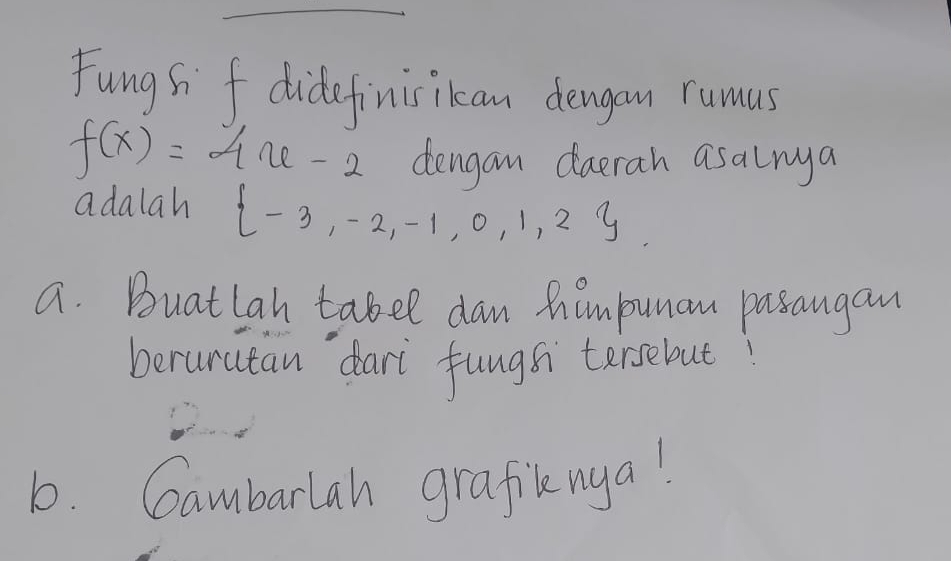 Fungsi f didefinisikan dengan rumus
f(x) = 4x - 2 dengan daerah asalnya
adalah {-3, -2, -1, 0, 1, 2}.
a. Buatlah tabel dan himpunan pasangan
berurutan dari fungsi tersebut !
b. Gambarlah grafiknya!